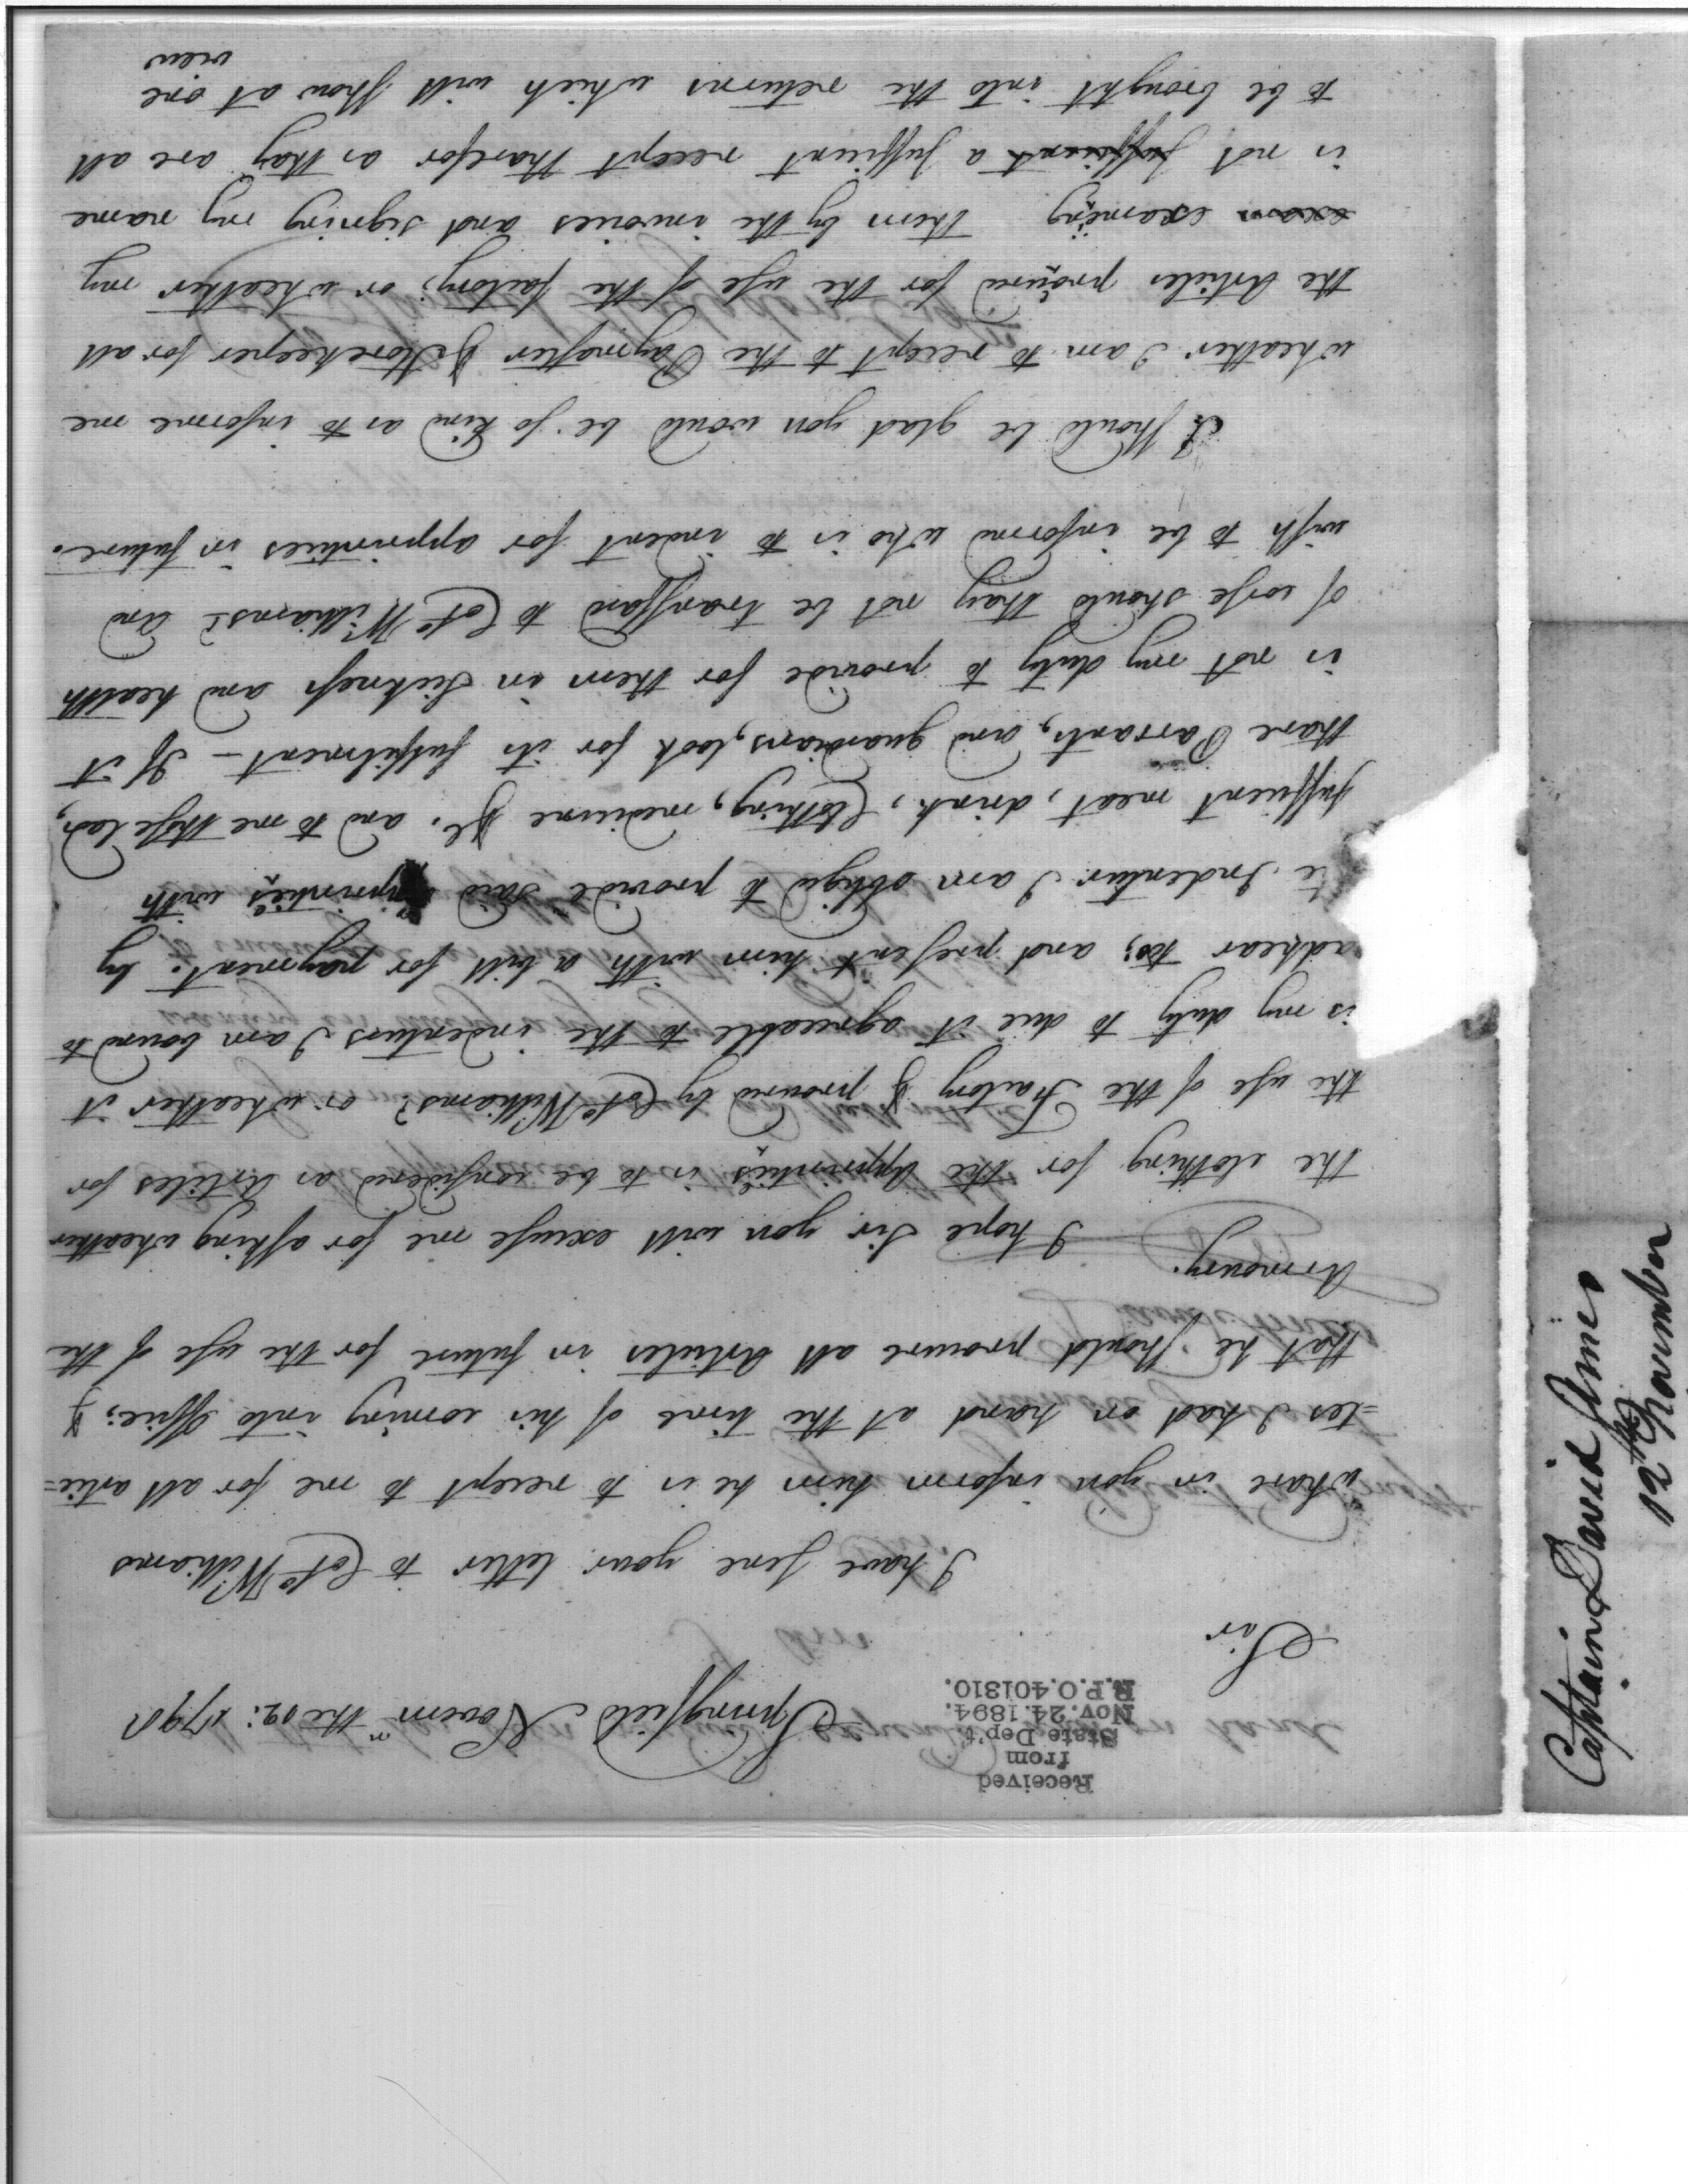 Received
from
State Dep't
Nov. 24. 1894.
R.P.O. 401310.
Springfield Novem the 12: 1798
Sir
I have sene your letter to Colo Williams
whare in you inform him he is to recept to me for all artic=
=les I had on hand at the time of his coming into Office; &
that he should procure all Articles in future for the use of the
Armoury.
I hope Sir you will excuse me for asking wheather
the clothing for the Apprinties is to be considered as Articles for
the use of the Factory & procured by Colo Williams? or wheather it
is my duty to due it agreeable to the indenturs I am bound to
adhear too; and present him with a bill for payment. by
Indentur I am obliged to provide said apprinties with
sufficient meat, drink, Clothing, medicine &c. and to me these Lads,
thare Parrants, and guardians, look for its fulfilment - If it
is not my duty to provide for them in Sickness and health
of corse should they not be transfard to Colo Williams? and
wish to be informd who is to indent for apprinties in future.
I should be glad you would be so kind as to informe me
wheather I am to recept to the Paymaster & Storekeeper for all
the Articles procured for the use of the factory; or wheather my
exam examing them by the invoices and signing my name
is not sufficient a sufficient recept tharefor as thay are all
to be brought into the returns which will show at one
view
Captain David Ames
12th November